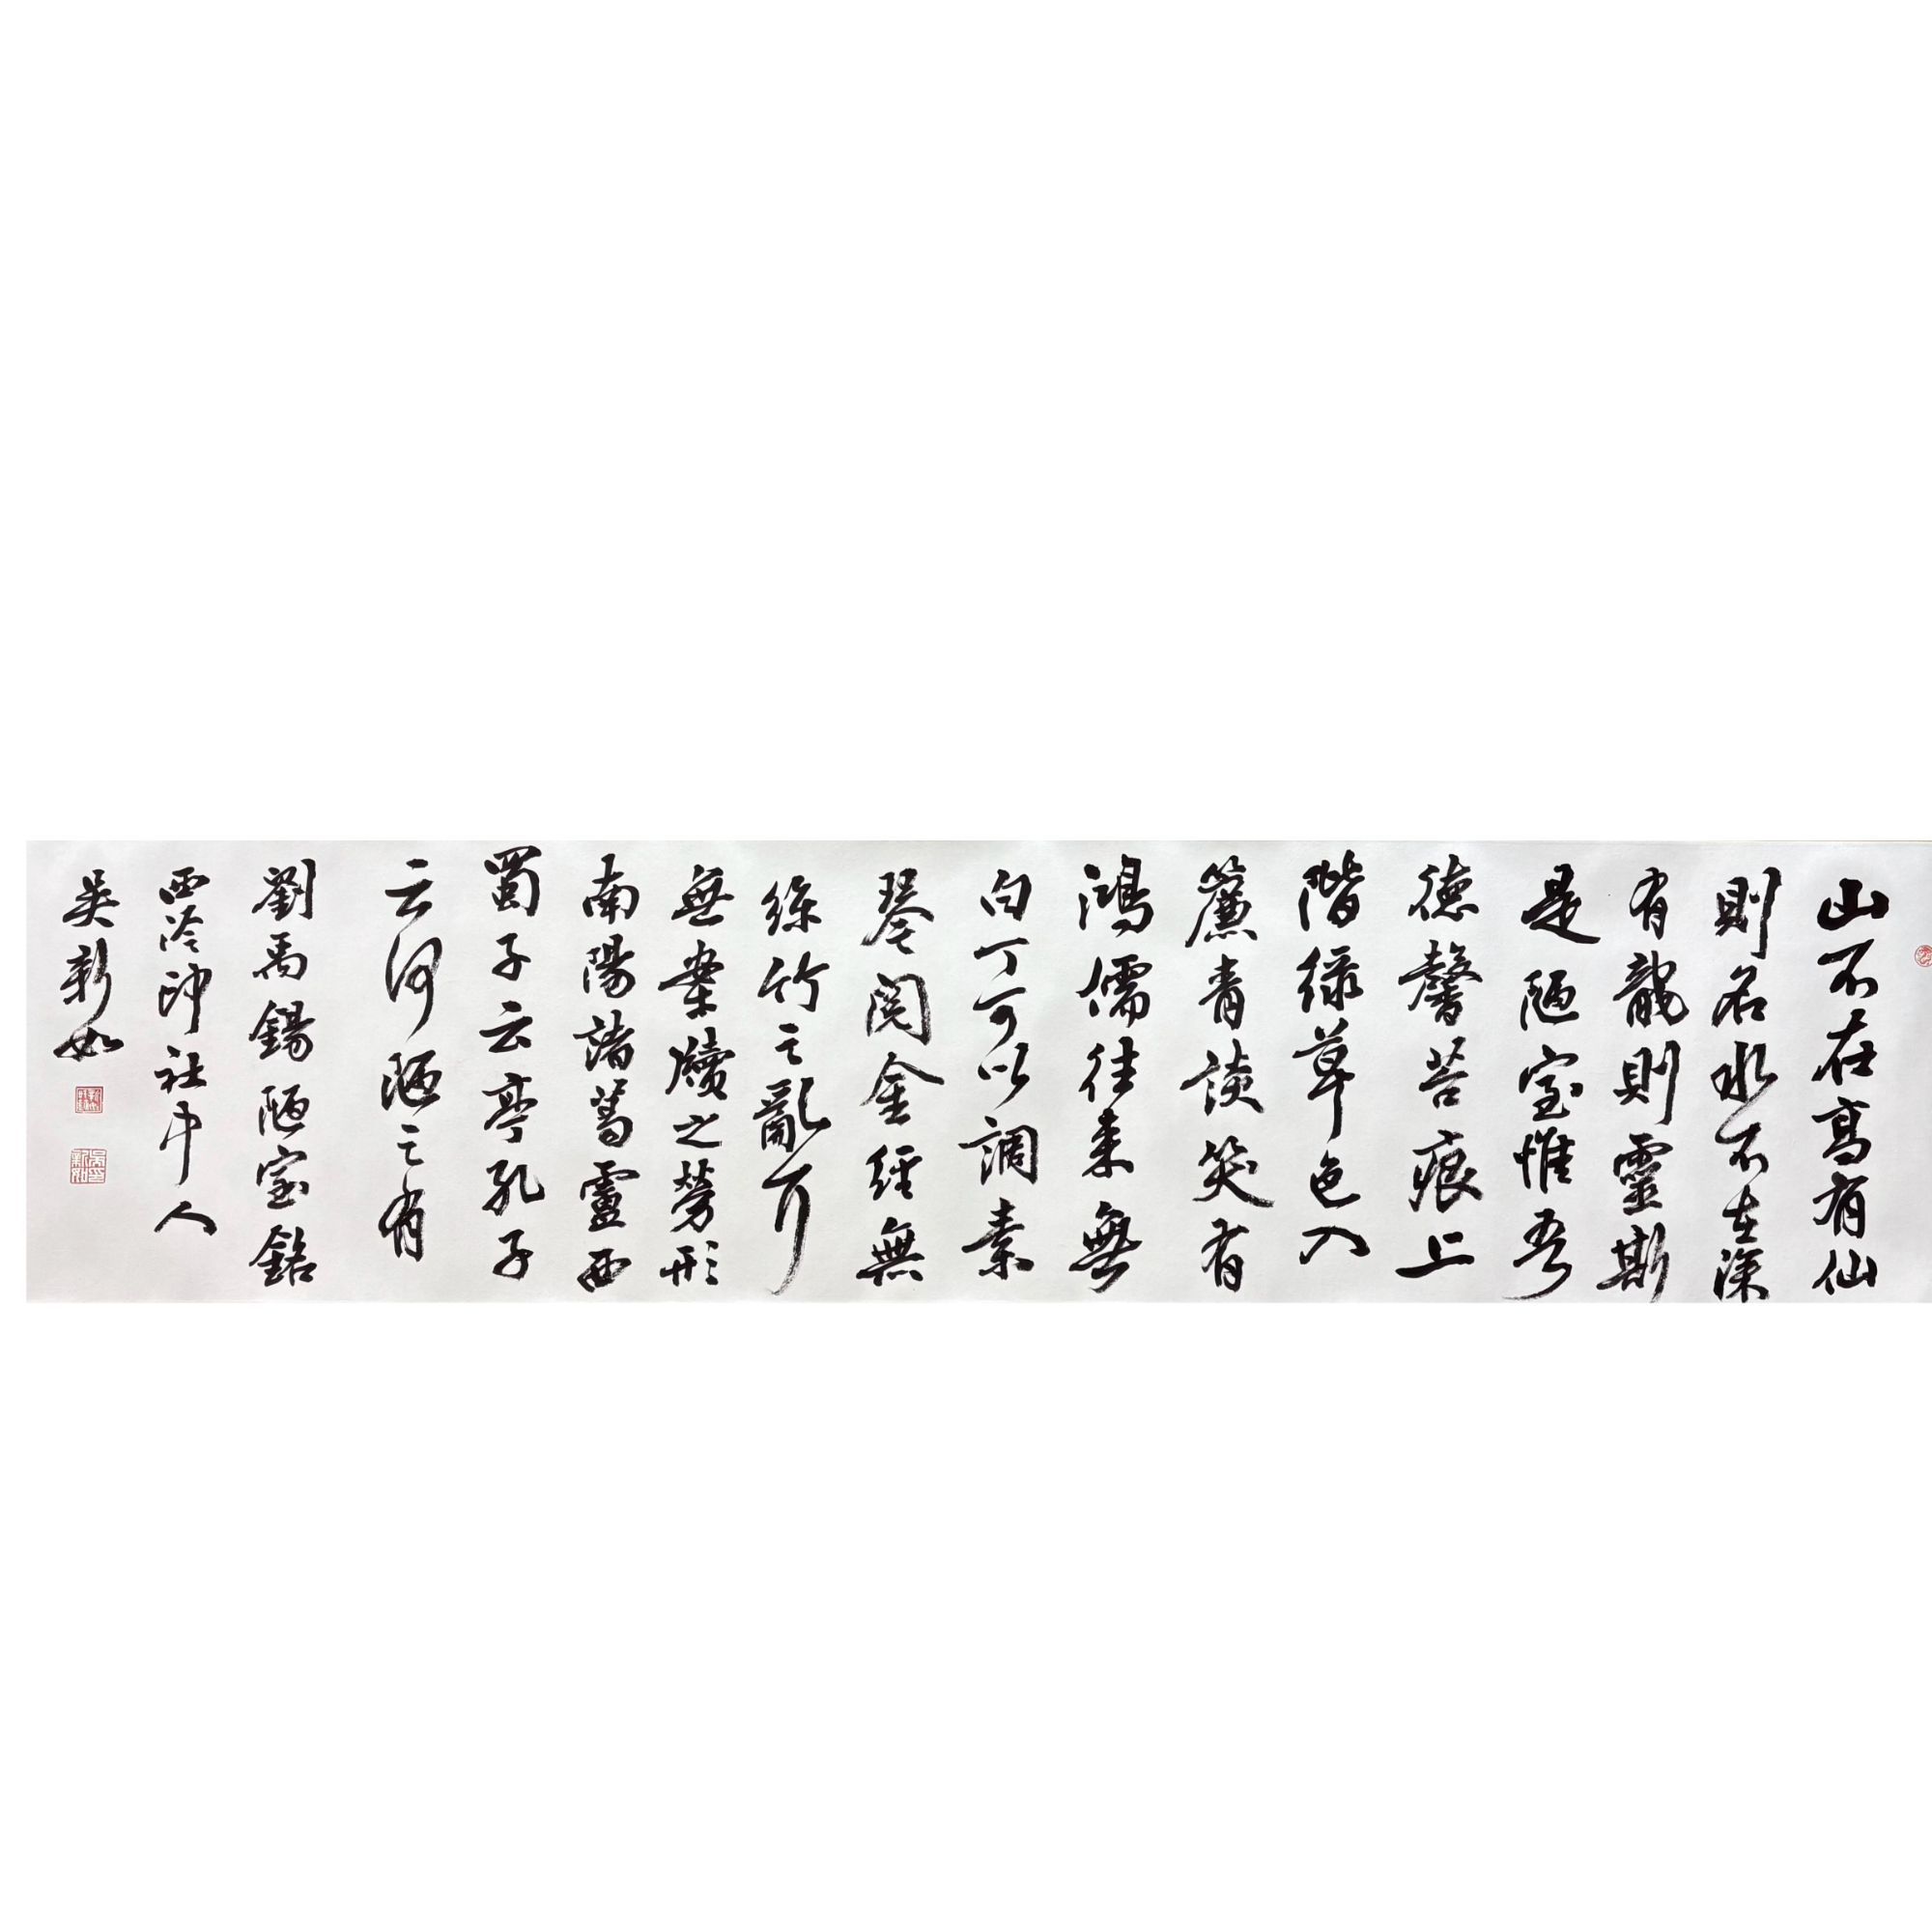 山不在高有仙
則名水不在深
有龍則靈斯
是陋室惟吾
德馨苔痕上
階綠草色入
簾青談笑有
鴻儒往來無
白丁可以調素
琴閱金經無
絲竹之亂耳
無案牘之勞形
南陽諸葛廬西
蜀子云亭孔子
云何陋之有
劉禹錫陋室銘
西泠印社中人
吳新如